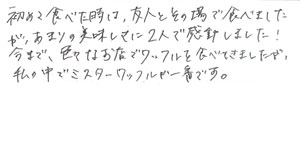 初めて食べた時は、友人とその場で食べました
が、あまりの美味しさに2人で感動しました!
今まで、色々なお店でワッフルを食べてきましたが、
私の中でミスターワッフルが一番です。